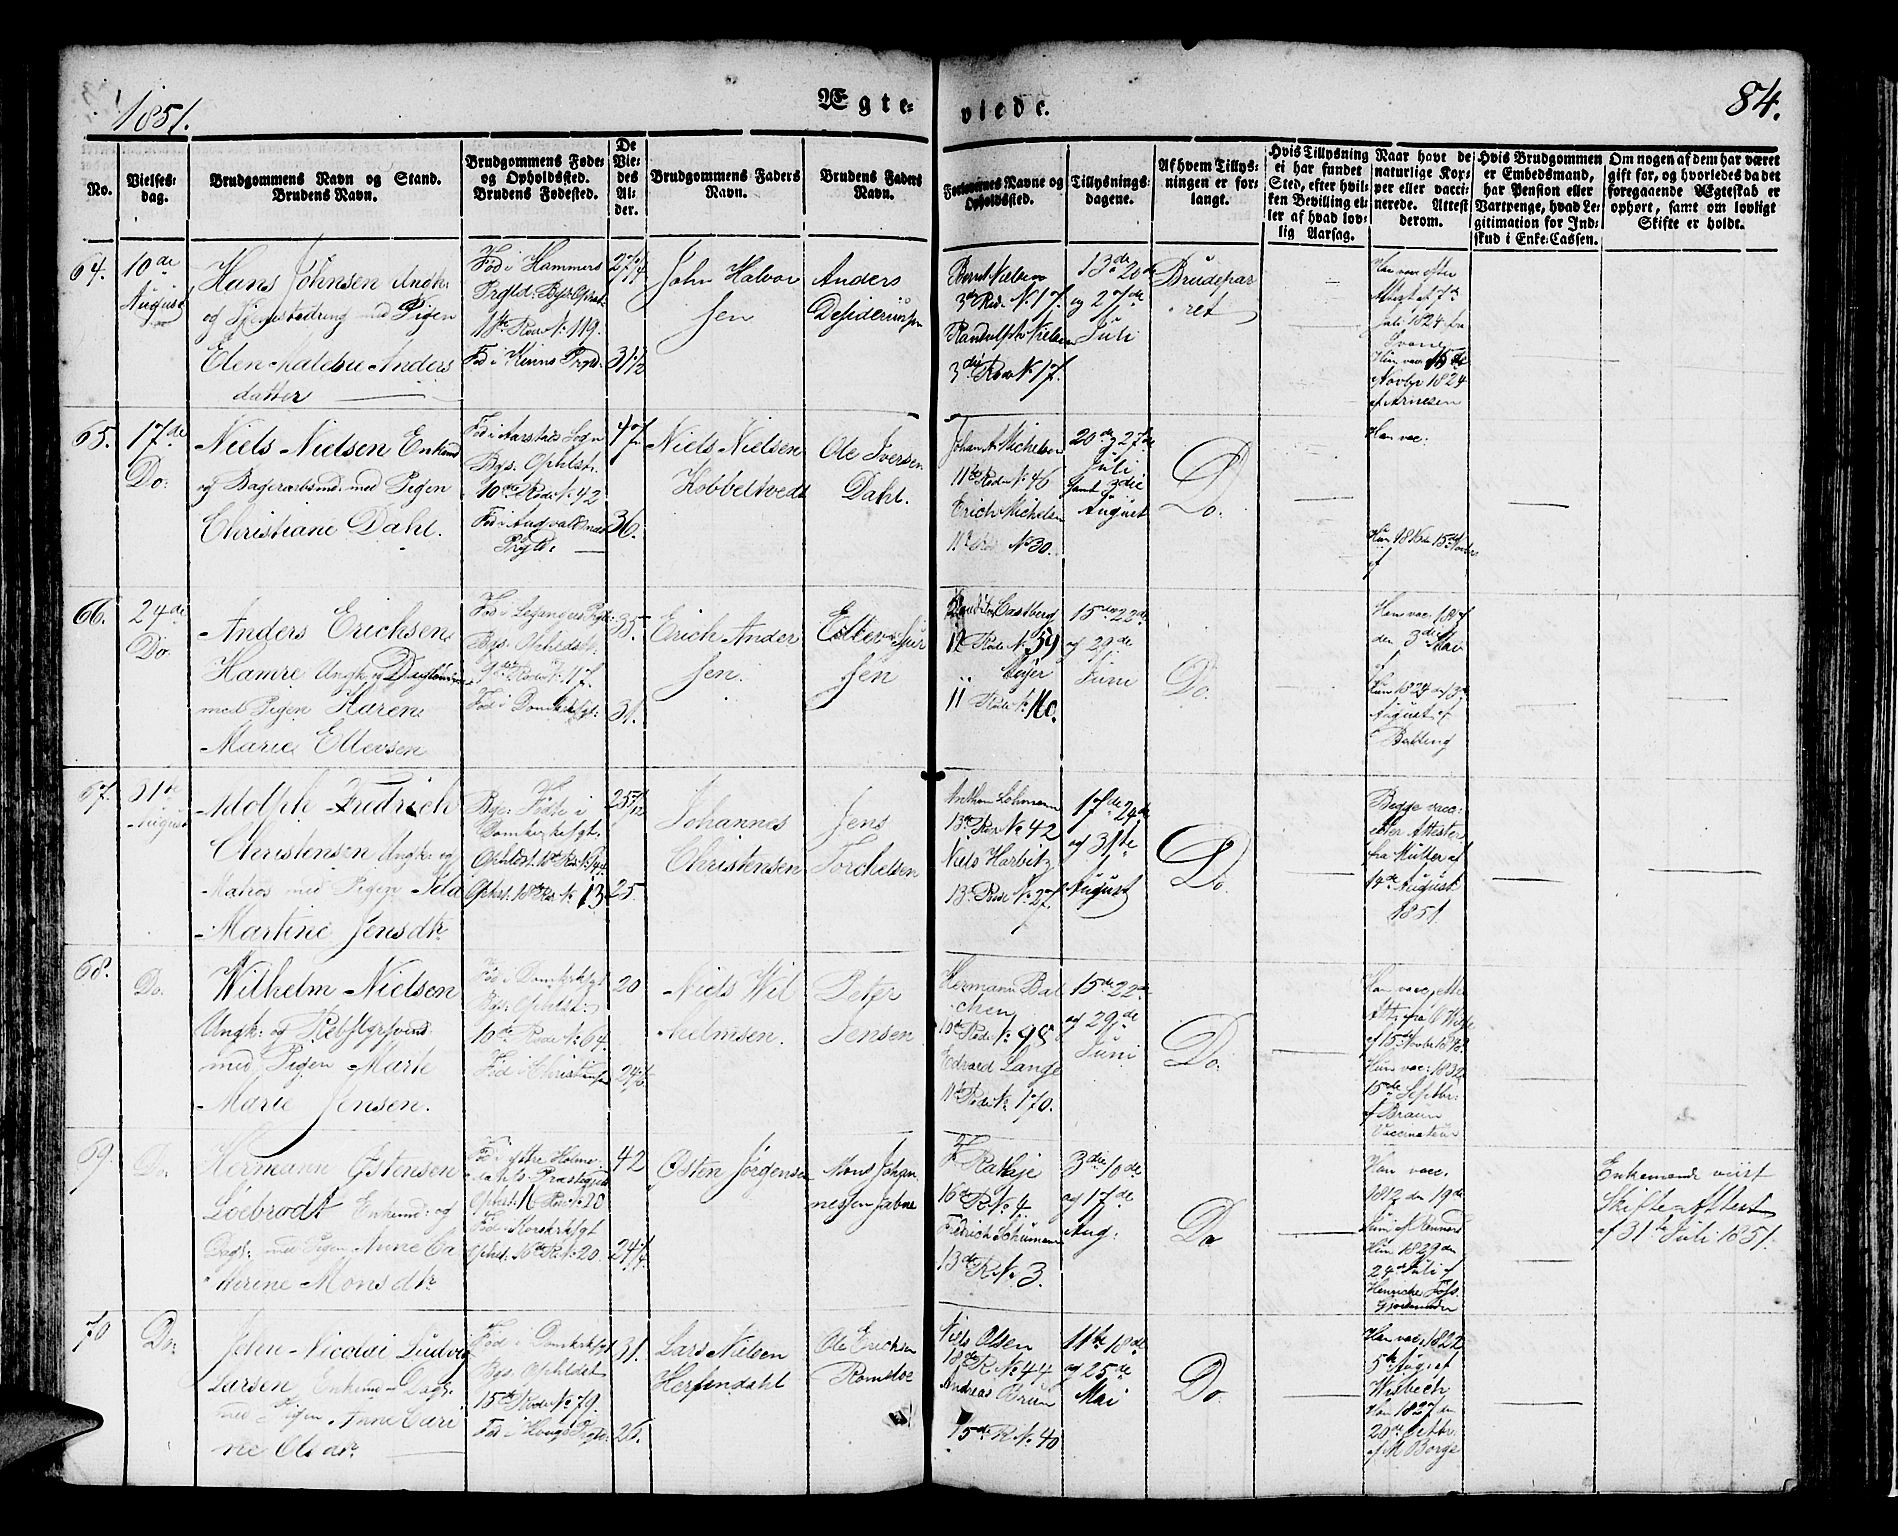 1851.
Ægte-
viede.
84.
No.
Vielses-
dag.
Brudgommens Navn og Stand.
Brudens Navn.
Brudgommens Føde-
og Opholdssted.
Brudens Fødested.
De
Vie-
des
Al-
der.
Brudgommens Faders
Navn.
Brudens Faders
Navn.
Forlovernes Navne og
Opholdssted.
Tillysnings-
dagene.
Af hvem Tillys-
ningen er for-
langt.
Hvis Tillysning
ei har fundet
Sted, efter hvil-
ken Bevilling el-
ler af hvad lov-
lig Aarsag.
Naar havt de
naturlige Kop-
per eller vacci-
nerede. Attest
derom.
Hvis Brudgommen
er Embedsmand,
har Pension eller
Vartpenge, hvad Le-
gitimation for Ind-
skud i Enke-Cassen.
Om nogen af dem har været
gift før, og hvorledes da det
foregaaende Ægteskab er
ophørt, samt om lovligt
Skifte er holdt.
64.
10de
August
Hans Johnsen Ungk:
og med Pigen
Elen Malene Anders
datter
Fød i Hammers
Prgld: Bys: Ophst:
11te Rode No 119.
Fød i Kinns Prgld:
John Halvor
sen
Anders
Desideriussen
Bernt Nielsen
3die Rode No 17.
Randulph Nielsen
3die Rode No 17.
13de 20de
og 27de
Juli
Brudepar
ret
Han vac. efter
Attest af 7de
Juli 1824 fra
Hun vac. 15de
Novbr 1824
af Arnesen
65.
17de
Do.
Niels Nielsen Enkemd
og med Pigen
Christiane Dahl.
Fød i Aarstads Sogn
Bys: Ophlst:
10de Rode No 42
Fød i
Prgld:
47
36.
Niels Nielsen
Hobbeltvedt
Ole Iversen
Dahl.
Johan A Michelsen
11te Rode No 46
Erich Michelsen
11te Rode No 30.
20de 27de
Juli
samt 3die
August
Do.
Han vac:
66.
24de
Do.
Anders Erichsen
Hamre Ungk: og
med Pigen Karen
Marie Ellevsen
Fød i Prgld:
Bys: Ophldst:
Rode No 17.
Fød i Domkirksgt:
35.
31.
Erich Ander
sen.
sen
Castberg
12 Rode No 59
Meyer
11 Rode No 110.
15de 22de
og 29de
Juni
Do.
Han vac: 1817
den 3die Mai
af
Hun 1824 den 13de
August af
67.
31te
August
Adolph Fredrich
Christensen Ungk: og
Matros med Pigen Ida
Martine Jensdtr
Begge Fødte i
Domkirksgt.
25
25.
Johannes
Christensen
Jens
Torchelsen
Anthon Lohmann
13de Rode No 42
Niels Harbitz
13de Rode No 27.
17de 24de
og 31te
August
Do.
Begge vacc:
efter Attester
fra Müller af
14de August
1851.
68.
Do.
Wilhelm Nielsen
Ungk: og
med Pigen Marte
Marie Jensen.
Fød i Domkirksgt
Bys: Ophlst:
10de Rode No 64.
Fød i Christiansand
20
Niels Wil
helmsen
Peter
Jensen
Hermann Bal
chen
10de Rode No 98
Edvard Lange
11te Rode No 170.
15de 22de
og 29de
Juni
Do.
Hun vac: 1832
15de Septbr:
af Braun
Vaccinateur
69.
Do.
Hermann Østensen
Løebrodt Enkemd: og
Dags: med Pigen Anne Ca
therine Monsdtr
Fød i Ytre Holme
dahls Præstegjeld
Ophst: 16 Rode No 20
Fød i Korskirksgt
Ophst: 16de R. No 20.
42
Østen Jørgensen
Mons Johan
nessen
16de R. No 4.
Fredrich Schumann
13de R. No 3.
3die 10de
og 17de
Aug:
Do
Han vacc.
1812 den 19de
Juni af
Hun 1829 den
24de Juli af
Henricke Foss
Gjordemoder
Enkemand viist
Skifte-Attest
af 31te Juli 1851.
70
Do:
John Nicolai Ludvig
Larsen Enkemd og Dags:
med Pigen Anne Cari
ne Olsdtr
Fød i Domkirksgt
Bys: Ophldst
15de Rode No 79.
Fød i Hougs Prgld:
31.
26.
Lars Nielsen
Herfindahl
Ole Erichsen
Romsloe
Niels Olsen
18de R. No 44
Andreas Bruun
15de R. No 40
11te 18de
og 25de
Mai
Do
Han vac. 1822
5te Aug. af
Wisbech
Hun 1827 den
20de Octbr.
af M Borge